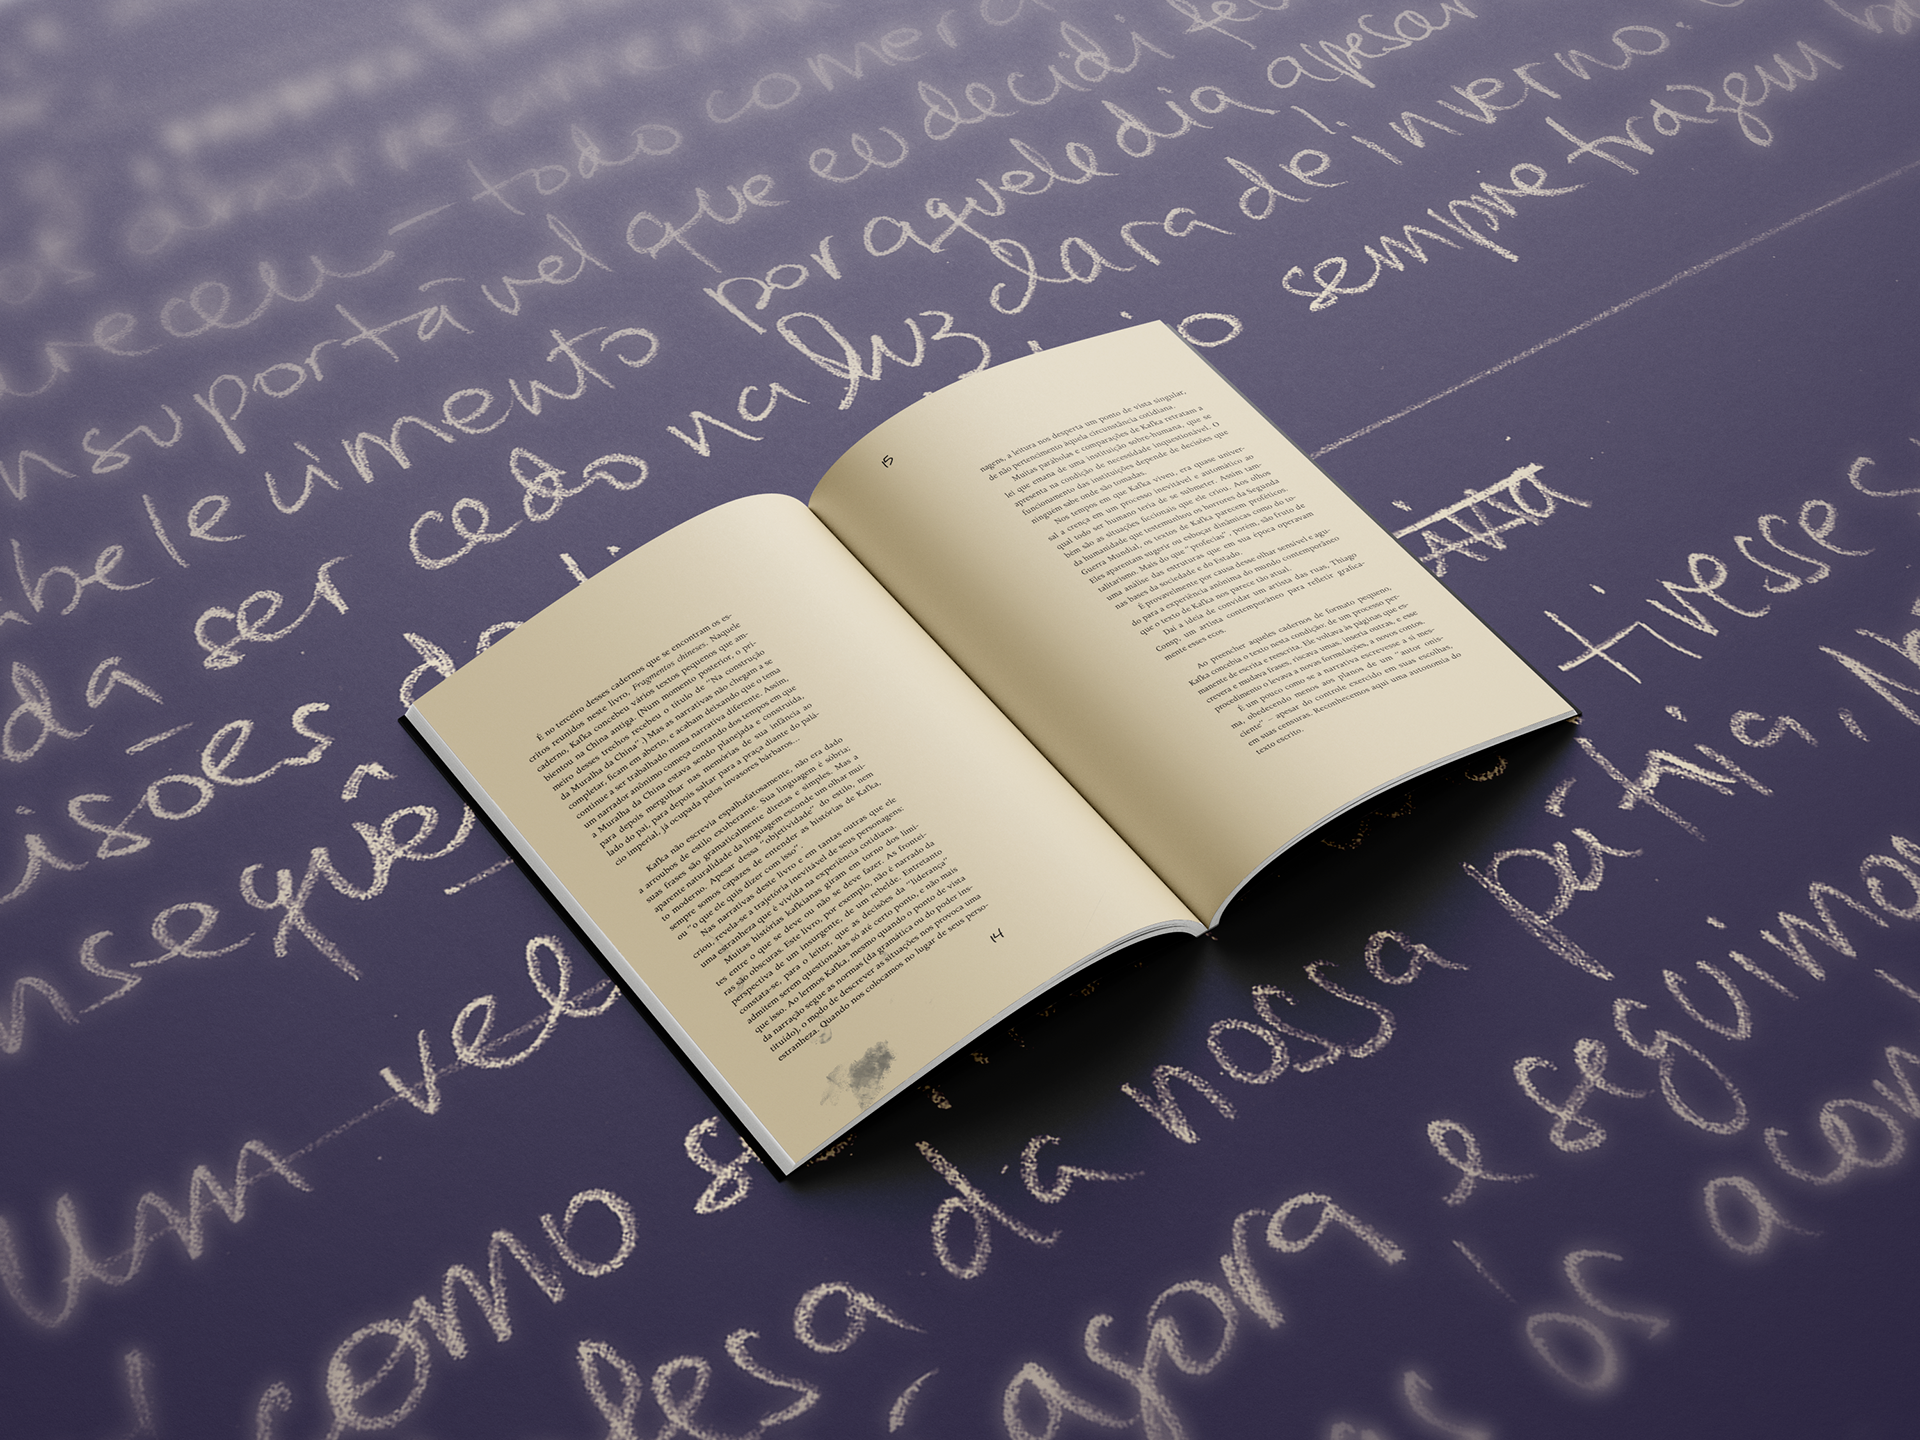 abor re
todo comer
areceu —
insuportável que eu decidi
abelecimento por aquele dia apesar
da ser cedo na luz clara de inverno.
sempre trazem
tivesse
um vel
como se
da nossa pátria
lesa
, agora e seguimos
É no terceiro desses cadernos que se encontram os es-
critos reunidos neste livro, Fragmentos chineses. Naquele
caderno, Kafka concebeu vários textos pequenos que am-
bientou na China antiga. (Num momento posterior, o pri-
meiro desses trechos recebeu o título de “Na construção
da Muralha da China”.) Mas as narrativas não chegam a se
completar, ficam em aberto, e acabam deixando que o tema
continue a ser trabalhado numa narrativa diferente. Assim,
um narrador anônimo começa contando dos tempos em que
a Muralha da China estava sendo planejada e construída,
para depois mergulhar nas memórias de sua infância ao
lado do pai, para depois saltar para a praça diante do palá-
cio imperial, já ocupada pelos invasores bárbaros...
Kafka não escrevia espalhafatosamente, não era dado
a arroubos de estilo exuberante. Sua linguagem é sóbria;
suas frases são gramaticalmente diretas e simples. Mas a
aparente naturalidade da linguagem esconde um olhar mui-
to moderno. Apesar dessa “objetividade” do estilo, nem
sempre somos capazes de entender as histórias de Kafka,
ou “o que ele quis dizer com isso”.
Nas narrativas deste livro e em tantas outras que ele
criou, revela-se a trajetória inevitável de seus personagens:
uma estranheza que é vivida na experiência cotidiana.
Muitas histórias kafkianas giram em torno dos limi-
tes entre o que se deve ou não se deve fazer. As frontei-
ras são obscuras. Este livro, por exemplo, não é narrado da
perspectiva de um insurgente, de um rebelde. Entretanto
constata-se, para o leitor, que as decisões da “liderança”
admitem serem questionadas só até certo ponto, e não mais
que isso. Ao lermos Kafka, mesmo quando o ponto de vista
da narração segue as normas (da gramática ou do poder ins-
tituído), o modo de descrever as situações nos provoca uma
estranheza. Quando nos colocamos no lugar de seus perso-
14
15
nagens, a leitura nos desperta um ponto de vista singular,
de não pertencimento àquela circunstância cotidiana.
Muitas parábolas e comparações de Kafka retratam a
lei que emana de uma instituição sobre-humana, que se
apresenta na condição de necessidade inquestionável. O
funcionamento das instituições depende de decisões que
ninguém sabe onde são tomadas.
Nos tempos em que Kafka viveu, era quase univer-
sal a crença em um processo inevitável e automático ao
qual todo ser humano teria de se submeter. Assim tam-
bém são as situações ficcionais que ele criou. Aos olhos
da humanidade que testemunhou os horrores da Segunda
Guerra Mundial, os textos de Kafka parecem proféticos.
Eles aparentam sugerir ou esboçar dinâmicas como do to-
talitarismo. Mais do que “profecias”, porém, são fruto de
uma análise das estruturas que em sua época operavam
nas bases da sociedade e do Estado.
É provavelmente por causa desse olhar sensível e agu-
do para a experiência anônima do mundo contemporâneo
que o texto de Kafka nos parece tão atual.
Daí a ideia de convidar um artista das ruas, Thiago
Consp, um artista contemporâneo para refletir grafica-
mente esses ecos.
Ao preencher aqueles cadernos de formato pequeno,
Kafka concebia o texto nesta condição: de um processo per-
manente de escrita e reescrita. Ele voltava às páginas que es-
crevera e mudava frases, riscava umas, inseria outras, e esse
procedimento o levava a novas formulações, a novos contos.
É um pouco como se a narrativa escrevesse a si mes-
ma, obedecendo menos aos planos de um “autor onis-
ciente” – apesar do controle exercido em suas escolhas,
em suas censuras. Reconhecemos aqui uma autonomia do
texto escrito.